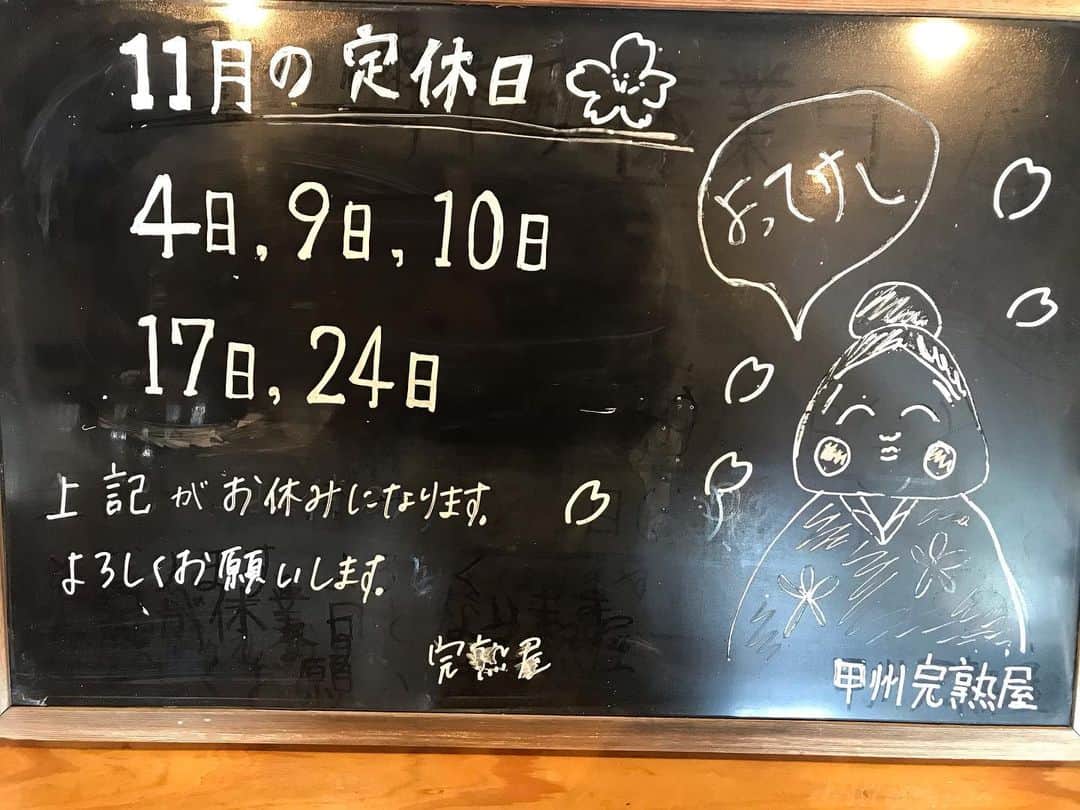 11月の定休日
4日,9日,10日
17日,24日
上記がお休みになります。
よろしくお願いします。
完熟屋
よってけし
甲州完熟屋